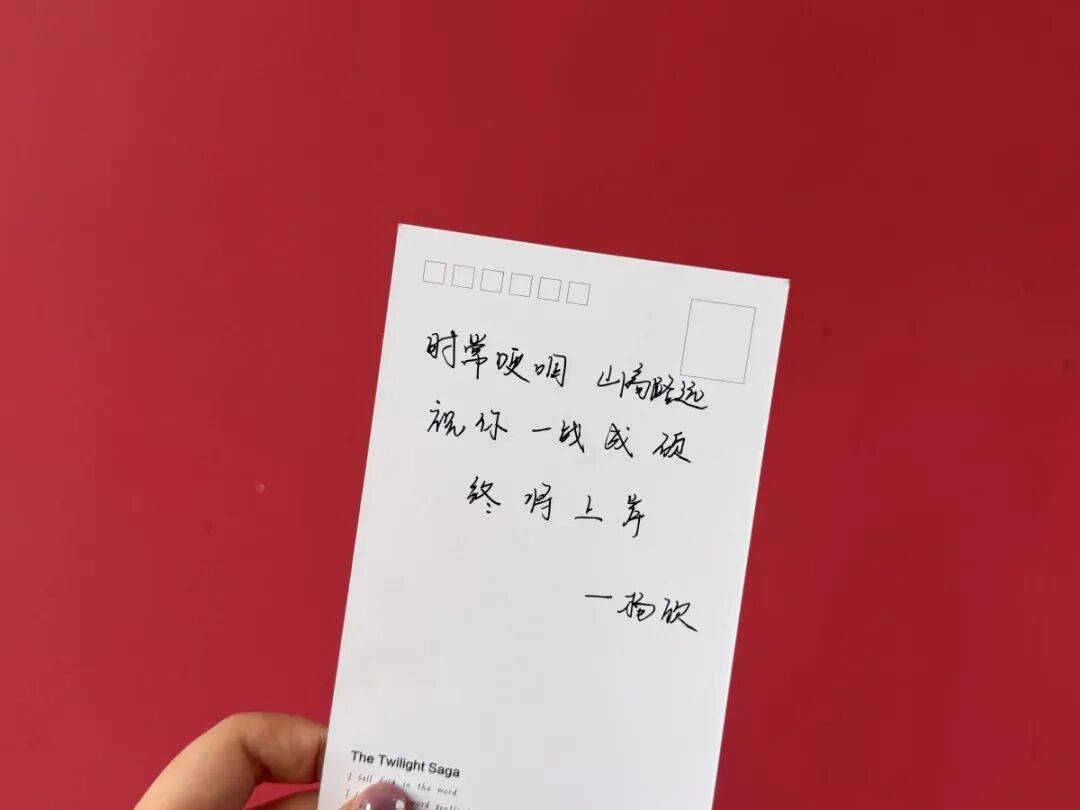 时常哽咽 山高路远
祝你一战成硕
终将上岸
—杨欣
The Twilight Saga
I Sell in the word
word